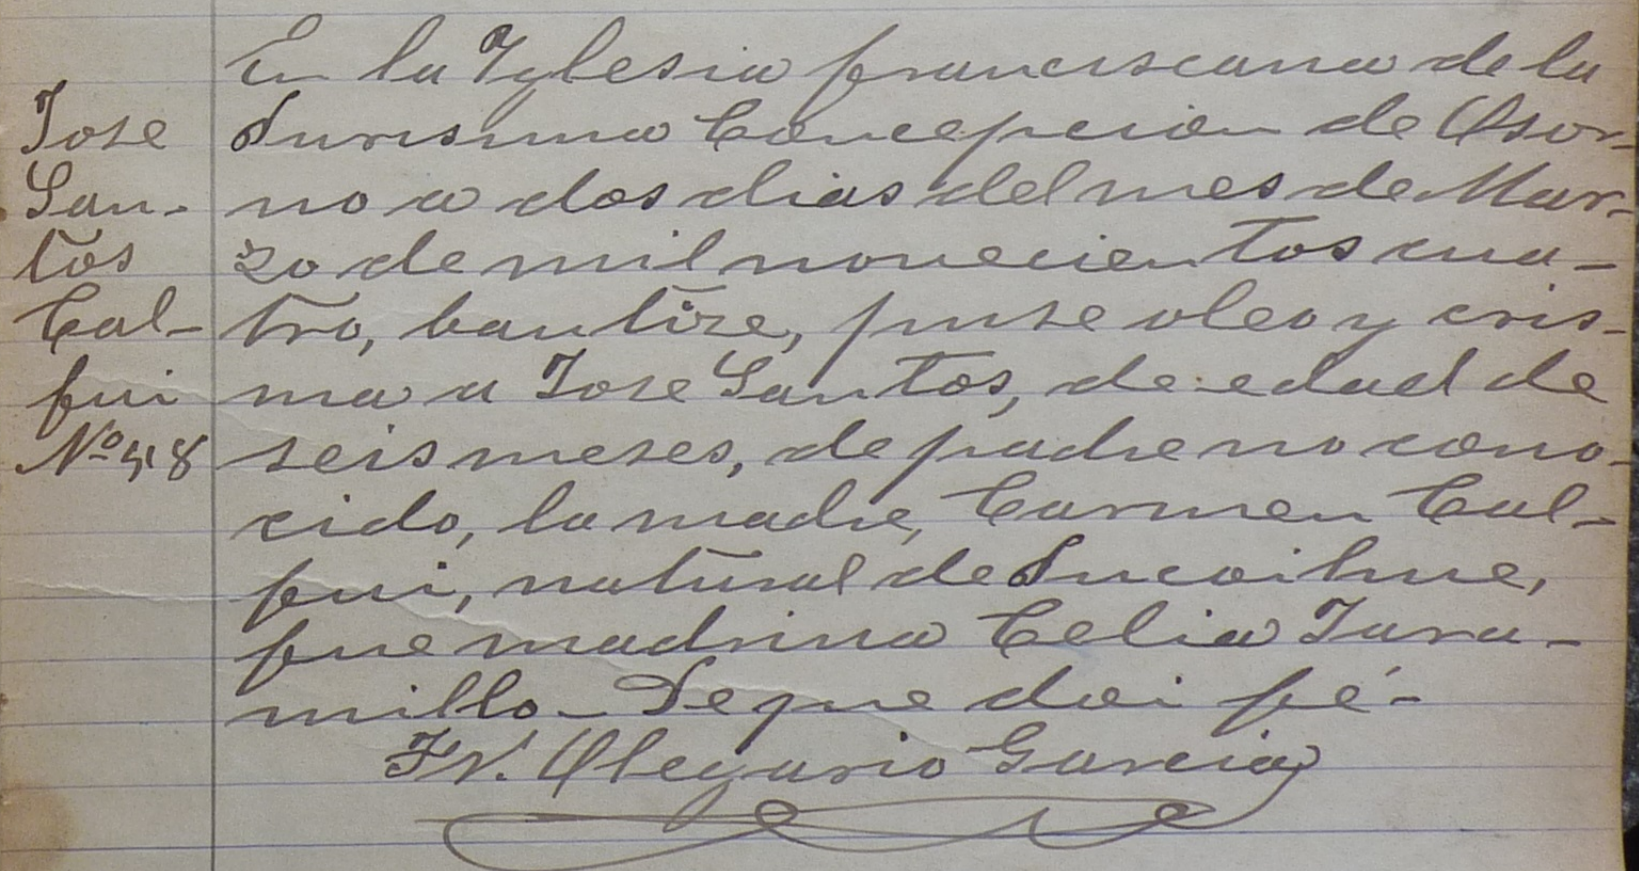 En la Yglesia franciscana de la
Purisima Concepcion de Osor-
no a dos dias del mes de Mar-
zo de mil novecientos cua-
tro, bautize, puse oleo y cris-
ma a Jose Santos, de edad de
seis meses, de padre no cono-
cido, la madre, Carmen Cal-
fui, natural de Pucoihue,
fue madrina Celia Jara-
millo_ De que doi fé-
Fr. Olegario Garcia
Jose
San-
tos
Cal-
fui
Nº 48